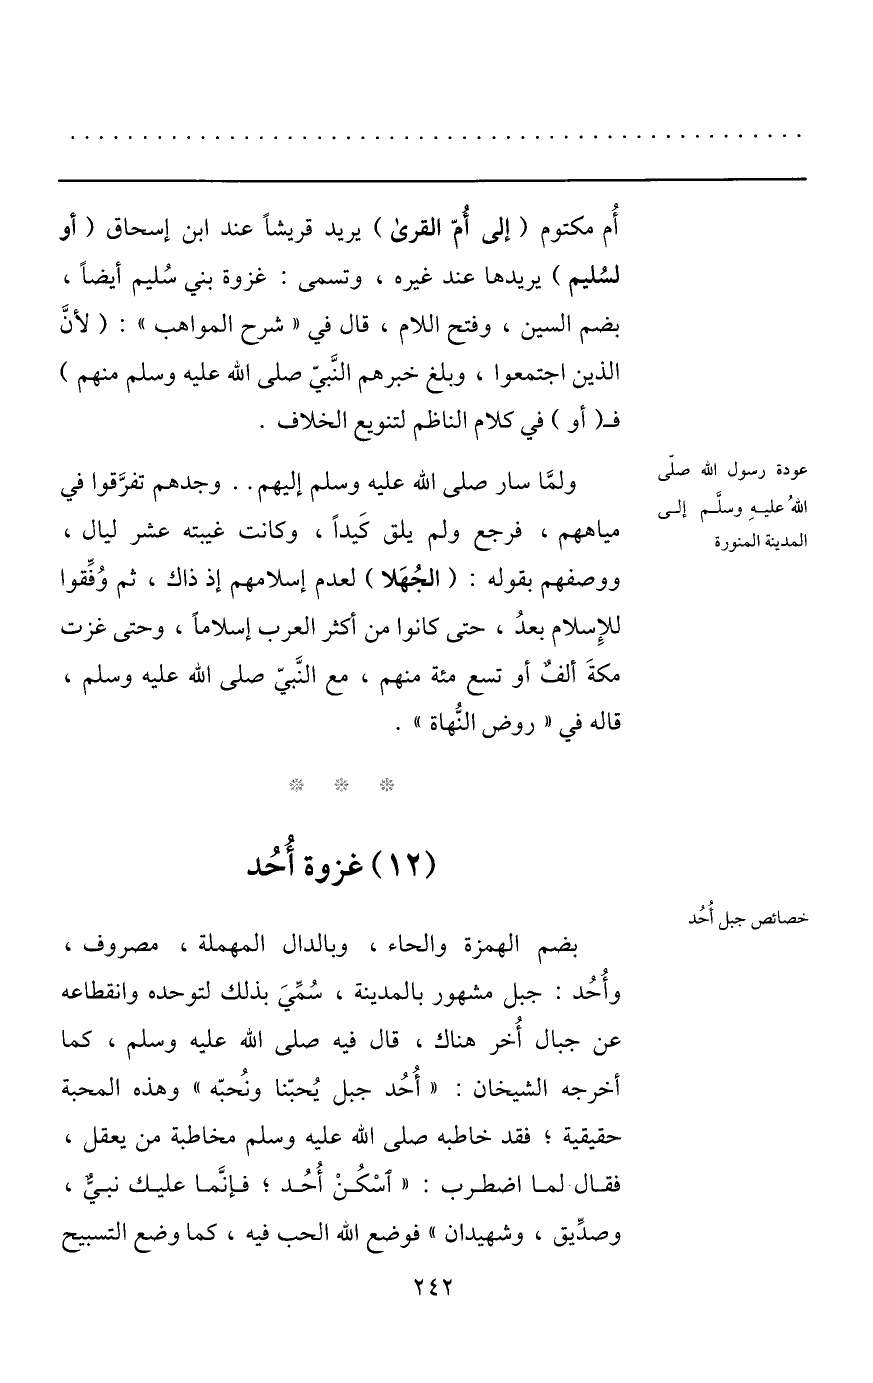 أُم مكتوم ( إلى أُمّ القرىٰ ) يريد قريشاً عند ابن إسحاق ( أو
لسُليم ) يريدها عند غيره ، وتسمى : غزوة بني سُليم أيضاً ،
بضم السين ، وفتح اللام ، قال في « شرح المواهب » : ( لأنَّ
الذين اجتمعوا ، وبلغ خبرهم النَّبيّ صلى الله عليه وسلم منهم )
فـ( أو ) في كلام الناظم لتنويع الخلاف .
عودة رسول الله صلّى
اللهُ عليـهِ وسلَّـم إلـى
المدينة المنورة
ولمَّا سار صلى الله عليه وسلم إليهم . . وجدهم تفرَّقوا في
مياههم ، فرجع ولم يلق كَيداً ، وكانت غيبته عشر ليال ،
ووصفهم بقوله : ( الجُهَلا ) لعدم إسلامهم إذ ذاك ، ثم وُفِّقوا
للإِسلام بعدُ ، حتى كانوا من أكثر العرب إسلاماً ، وحتى غزت
مكةَ ألفٌ أو تسع مئة منهم ، مع النَّبيّ صلى الله عليه وسلم ،
قاله في « روض النُّهاة » .
(١٢) غزوة أُحُد
خصائص جبل أُحُد
بضم الهمزة والحاء ، وبالدال المهملة ، مصروف ،
وأُحُد : جبل مشهور بالمدينة ، سُمِّيَ بذلك لتوحده وانقطاعه
عن جبال أُخر هناك ، قال فيه صلى الله عليه وسلم ، كما
أخرجه الشيخان : « أُحُد جبل يُحبّنا ونُحبّه » وهذه المحبة
حقيقية ؛ فقد خاطبه صلى الله عليه وسلم مخاطبة من يعقل ،
فقـال لمـا اضطـرب : « ٱسْكُـنْ أُحُـد ؛ فـإنَّمـا عليـك نبـيٌّ ،
وصدِّيق ، وشهيدان » فوضع الله الحب فيه ، كما وضع التسبيح
٢٤٢